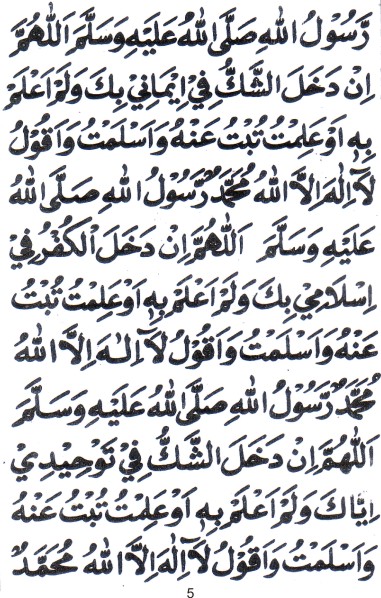 رَّسُوْلُ اللهِ صَلَّى اللهُ عَلَيْهِ وَسَلَّمَ اَللّٰهُمَّ
اِنْ دَخَلَ الشَّكُّ فِيْ اِيْمَانِيْ بِكَ وَلَمْ اَعْلَمْ
بِهٖ اَوْ عَلِمْتُ تُبْتُ عَنْهُ وَاَسْلَمْتُ وَاَقُوْلُ
لَآ اِلٰهَ اِلَّا اللهُ مُحَمَّدٌ رَّسُوْلُ اللهِ صَلَّى اللهُ
عَلَيْهِ وَسَلَّمَ اَللّٰهُمَّ اِنْ دَخَلَ الْكُفْرُ فِيْ
اِسْلَامِيْ بِكَ وَلَمْ اَعْلَمْ بِهٖ اَوْ عَلِمْتُ تُبْتُ
عَنْهُ وَاَسْلَمْتُ وَاَقُوْلُ لَآ اِلٰهَ اِلَّا اللهُ
مُحَمَّدٌ رَّسُوْلُ اللهِ صَلَّى اللهُ عَلَيْهِ وَسَلَّمَ
اَللّٰهُمَّ اِنْ دَخَلَ الشَّكُّ فِيْ تَوْحِيْدِيْ
اِيَّاكَ وَلَمْ اَعْلَمْ بِهٖ اَوْ عَلِمْتُ تُبْتُ عَنْهُ
وَاَسْلَمْتُ وَاَقُوْلُ لَآ اِلٰهَ اِلَّا اللهُ مُحَمَّدٌ
5